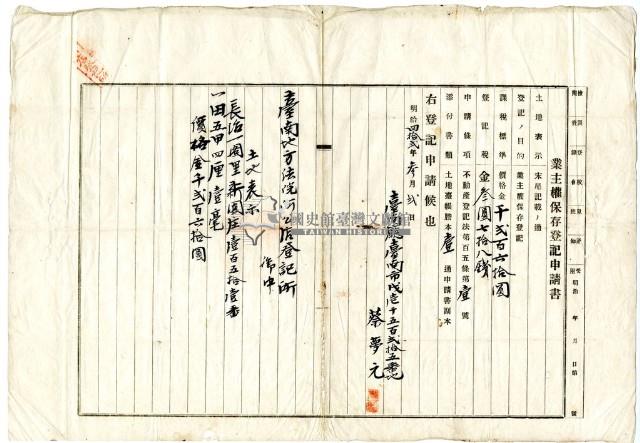 業主權保存登記申請書
土地表示 末尾記載ノ通
登記ノ目的 業主權保存登記
課稅標準價格金千弍百六拾圓
登記稅金參圓七拾八錢
申請條項 不動產登記法第百五條第壹號
添付書類 土地臺帳謄本壹通申請書副本
右登記申請候也
明治四拾弍年參月弍日
蔡夢元
臺南地方法院
登記所
御中
土地表示
長治一圖里新園庄壹百五拾壹番
一田五甲四厘壹毫
價格金千弍百六拾圓
國史館臺灣文獻館
TAIWAN HISTORICA